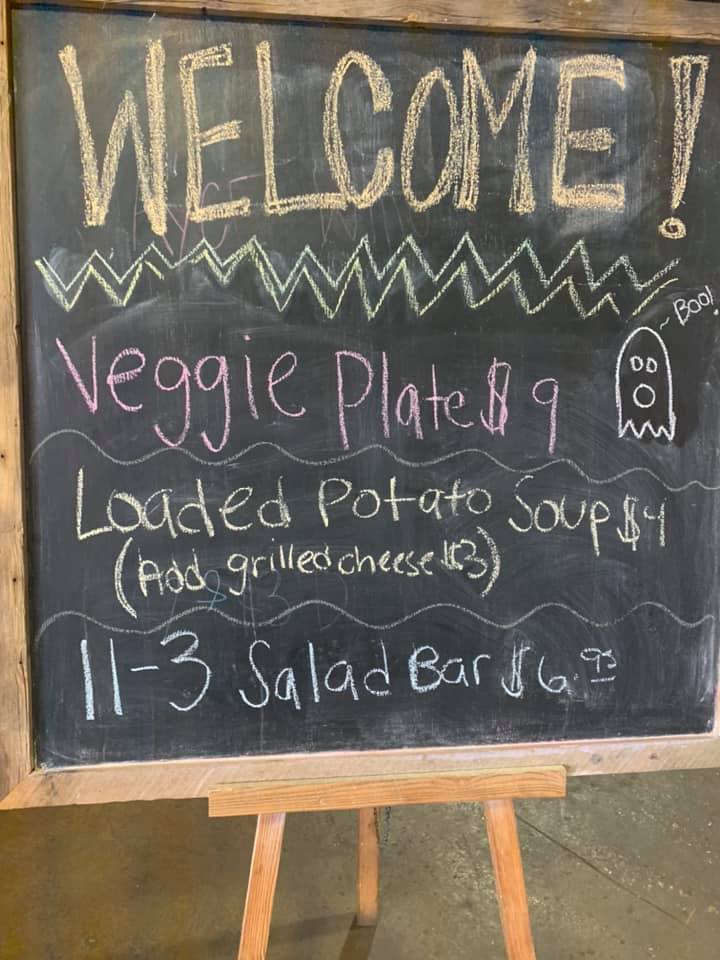 WELCOME!
Boo!
Veggie Plate $9
Loaded Potato Soup $4
(Add grilled cheese $3)
11-3 Salad Bar $6.95